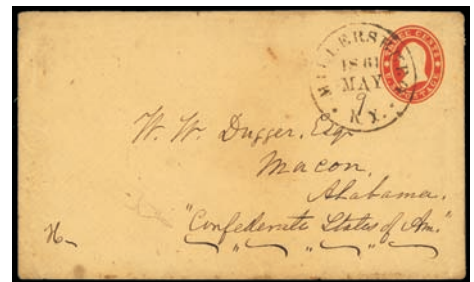 MILLERSBURG
1861
MAY
9
KY.
THREE CENTS
U.S. POSTAGE
W. W. Dugger, Esqr
Macon,
Alabama.
"Confederate States of Am."